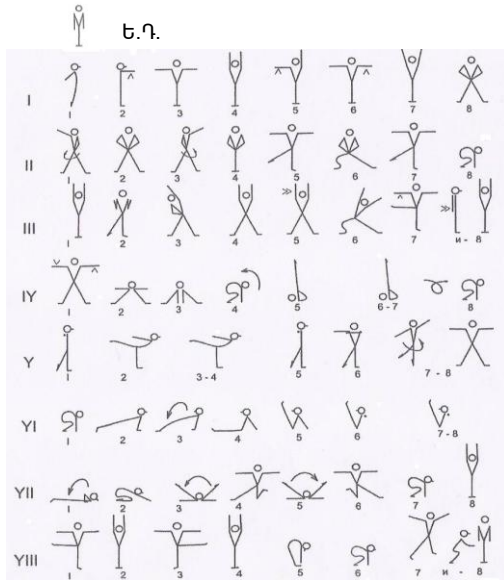 Ե.Դ.
I
1 2 3 4 5 6 7 8
II
1 2 3 4 5 6 7 8
III
1 2 3 4 5 6 7 и - 8
IY
1 2 3 4 5 6-7 8
Y
1 2 3-4 5 6 7-8
YI
1 2 3 4 5 6 7-8
YII
1 2 3 4 5 6 7 8
YIII
1 2 3 4 5 6 7 и - 8